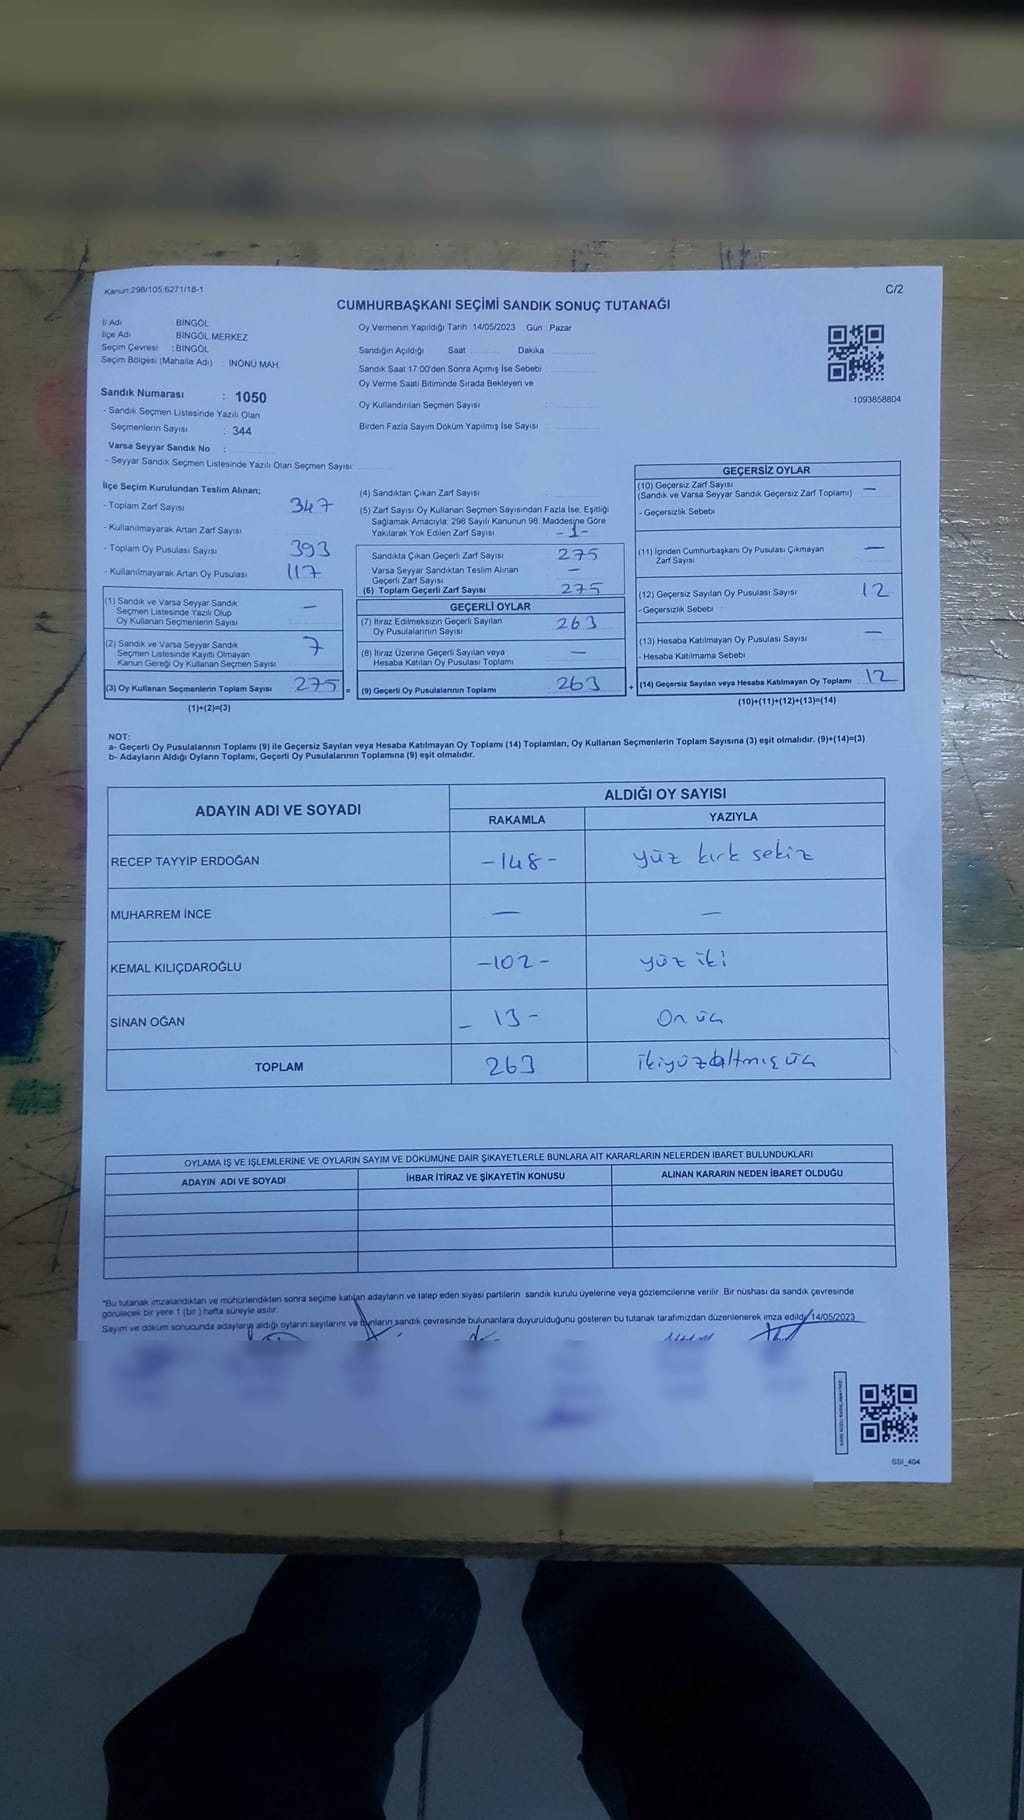 Kanun 298/105,6271/18-1
C/2
CUMHURBAŞKANI SEÇİMİ SANDIK SONUÇ TUTANAĞI
İl Adı : BİNGÖL
İlçe Adı : BİNGÖL MERKEZ
Seçim Çevresi : BİNGÖL
Seçim Bölgesi (Mahalle Adı) : İNÖNÜ MAH.
Sandık Numarası : 1050
- Sandık Seçmen Listesinde Yazılı Olan
Seçmenlerin Sayısı : 344
Varsa Seyyar Sandık No :
- Seyyar Sandık Seçmen Listesinde Yazılı Olan Seçmen Sayısı
Oy Vermenin Yapıldığı Tarih 14/05/2023 Gün : Pazar
Sandığın Açıldığı Saat : Dakika
Sandık Saat 17.00'den Sonra Açımış İse Sebebi :
Oy Verme Saati Bitiminde Sırada Bekleyen ve
Oy Kullandırılan Seçmen Sayısı :
Birden Fazla Sayım Döküm Yapılmış İse Sayısı :
1093858804
İlçe Seçim Kurulundan Teslim Alınan;
- Toplam Zarf Sayısı 347
- Kullanılmayarak Artan Zarf Sayısı
- Toplam Oy Pusulası Sayısı 393
- Kullanılmayarak Artan Oy Pusulası 117
(1) Sandık ve Varsa Seyyar Sandık
Seçmen Listesinde Yazılı Olup
Oy Kullanan Seçmenlerin Sayısı —
(2) Sandık ve Varsa Seyyar Sandık
Seçmen Listesinde Kayıtlı Olmayan
Kanun Gereği Oy Kullanan Seçmen Sayısı 7
(3) Oy Kullanan Seçmenlerin Toplam Sayısı 275 =
(1)+(2)=(3)
(4) Sandıktan Çıkan Zarf Sayısı :
(5) Zarf Sayısı Oy Kullanan Seçmen Sayısından Fazla İse, Eşitliği
Sağlamak Amacıyla; 298 Sayılı Kanunun 98. Maddesine Göre
Yakılarak Yok Edilen Zarf Sayısı -1-
Sandıkta Çıkan Geçerli Zarf Sayısı 275
Varsa Seyyar Sandıktan Teslim Alınan
Geçerli Zarf Sayısı —
(6) Toplam Geçerli Zarf Sayısı 275
GEÇERLİ OYLAR
(7) İtiraz Edilmeksizin Geçerli Sayılan
Oy Pusulalarının Sayısı 263
(8) İtiraz Üzerine Geçerli Sayılan veya
Hesaba Katılan Oy Pusulası Toplamı —
(9) Geçerli Oy Pusulalarının Toplamı 263 +
GEÇERSİZ OYLAR
(10) Geçersiz Zarf Sayısı
(Sandık ve Varsa Seyyar Sandık Geçersiz Zarf Toplamı) —
- Geçersizlik Sebebi
(11) İçinden Cumhurbaşkanı Oy Pusulası Çıkmayan
Zarf Sayısı —
(12) Geçersiz Sayılan Oy Pusulası Sayısı 12
- Geçersizlik Sebebi
(13) Hesaba Katılmayan Oy Pusulası Sayısı —
- Hesaba Katılmama Sebebi
(14) Geçersiz Sayılan veya Hesaba Katılmayan Oy Toplamı 12
(10)+(11)+(12)+(13)=(14)
NOT:
a- Geçerli Oy Pusulalarının Toplamı (9) ile Geçersiz Sayılan veya Hesaba Katılmayan Oy Toplamı (14) Toplamları, Oy Kullanan Seçmenlerin Toplam Sayısına (3) eşit olmalıdır. (9)+(14)=(3)
b- Adayların Aldığı Oyların Toplamı, Geçerli Oy Pusulalarının Toplamına (9) eşit olmalıdır.
ADAYIN ADI VE SOYADI ALDIĞI OY SAYISI
RAKAMLA YAZIYLA
RECEP TAYYİP ERDOĞAN -148- yüz kırk sekiz
MUHARREM İNCE — —
KEMAL KILIÇDAROĞLU -102- yüz iki
SİNAN OĞAN - 13 - On üç
TOPLAM 263 ikiyüzaltmış üç
OYLAMA İŞ VE İŞLEMLERİNE VE OYLARIN SAYIM VE DÖKÜMÜNE DAİR ŞİKAYETLERLE BUNLARA AİT KARARLARIN NELERDEN İBARET BULUNDUKLARI
ADAYIN ADI VE SOYADI İHBAR İTİRAZ VE ŞİKAYETİN KONUSU ALINAN KARARIN NEDEN İBARET OLDUĞU
*Bu tutanak imzalandıktan ve mühürlendikten sonra seçime katılan adayların ve talep eden siyasi partilerin sandık kurulu üyelerine veya gözlemcilerine verilir. Bir nüshası da sandık çevresinde
görülecek bir yere 1 (bir ) hafta süreyle asılır.
Sayım ve döküm sonucunda adayların aldığı oyların sayılarını ve bunların sandık çevresinde bulunanlara duyurulduğunu gösteren bu tutanak tarafımızdan düzenlenerek imza edildi. 14/05/2023
SSI_404